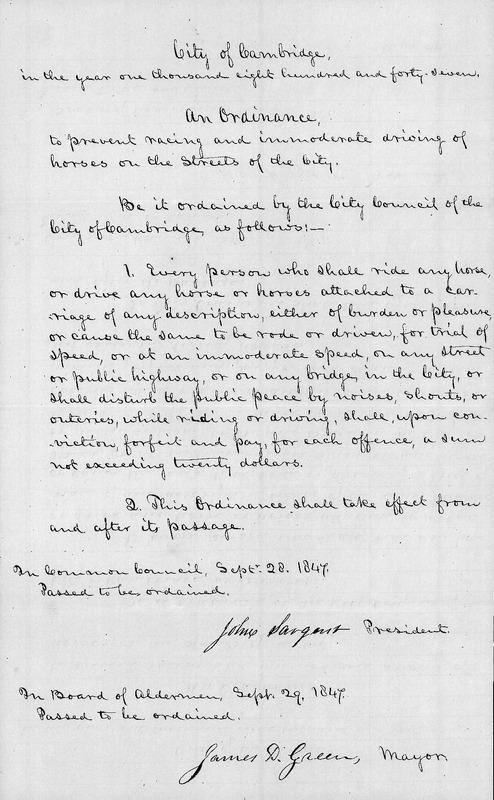 City of Cambridge,
in the year one thousand eight hundred and forty-seven.
An Ordinance,
to prevent racing and immoderate driving of
horses on the streets of the City.
Be it ordained by the City Council of the
City of Cambridge, as follows:—
1. Every person who shall ride any horse,
or drive any horse or horses attached to a car-
riage of any description, either of burden or pleasure,
or cause the same to be rode or driven, for trial of
speed, or at an immoderate speed, on any street
or public highway, or on any bridge, in the City, or
shall disturb the public peace by noises, shouts, or
outcries, while riding or driving, shall, upon con-
viction, forfeit and pay, for each offence, a sum
not exceeding twenty dollars.
2. This Ordinance shall take effect from
and after its passage.
In Common Council, Sept. 28. 1847.
Passed to be ordained.
John Sargent President.
In Board of Aldermen, Sept. 29. 1847.
Passed to be ordained.
James D. Green, Mayor.